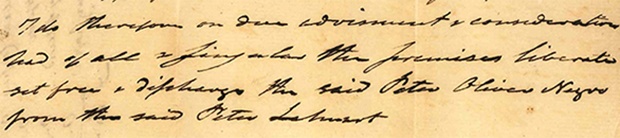 I do therefore on due advisement & consideration
had of all & singular the premises liberate
set free & discharge the said Peter Oliver Negro
from the said Peter Lehnert